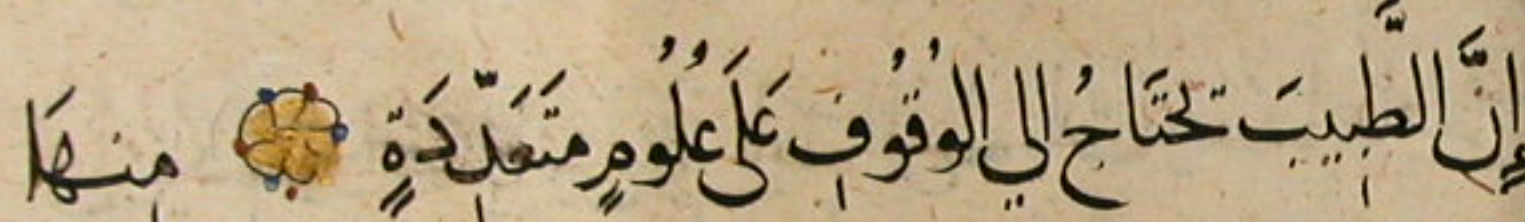 إِنَّ الطَّبِيبَ تحتَاجُ إلي الوُقُوفِ عَلَى عُلُومٍ مُتَعَدِّدَةٍ منهَا